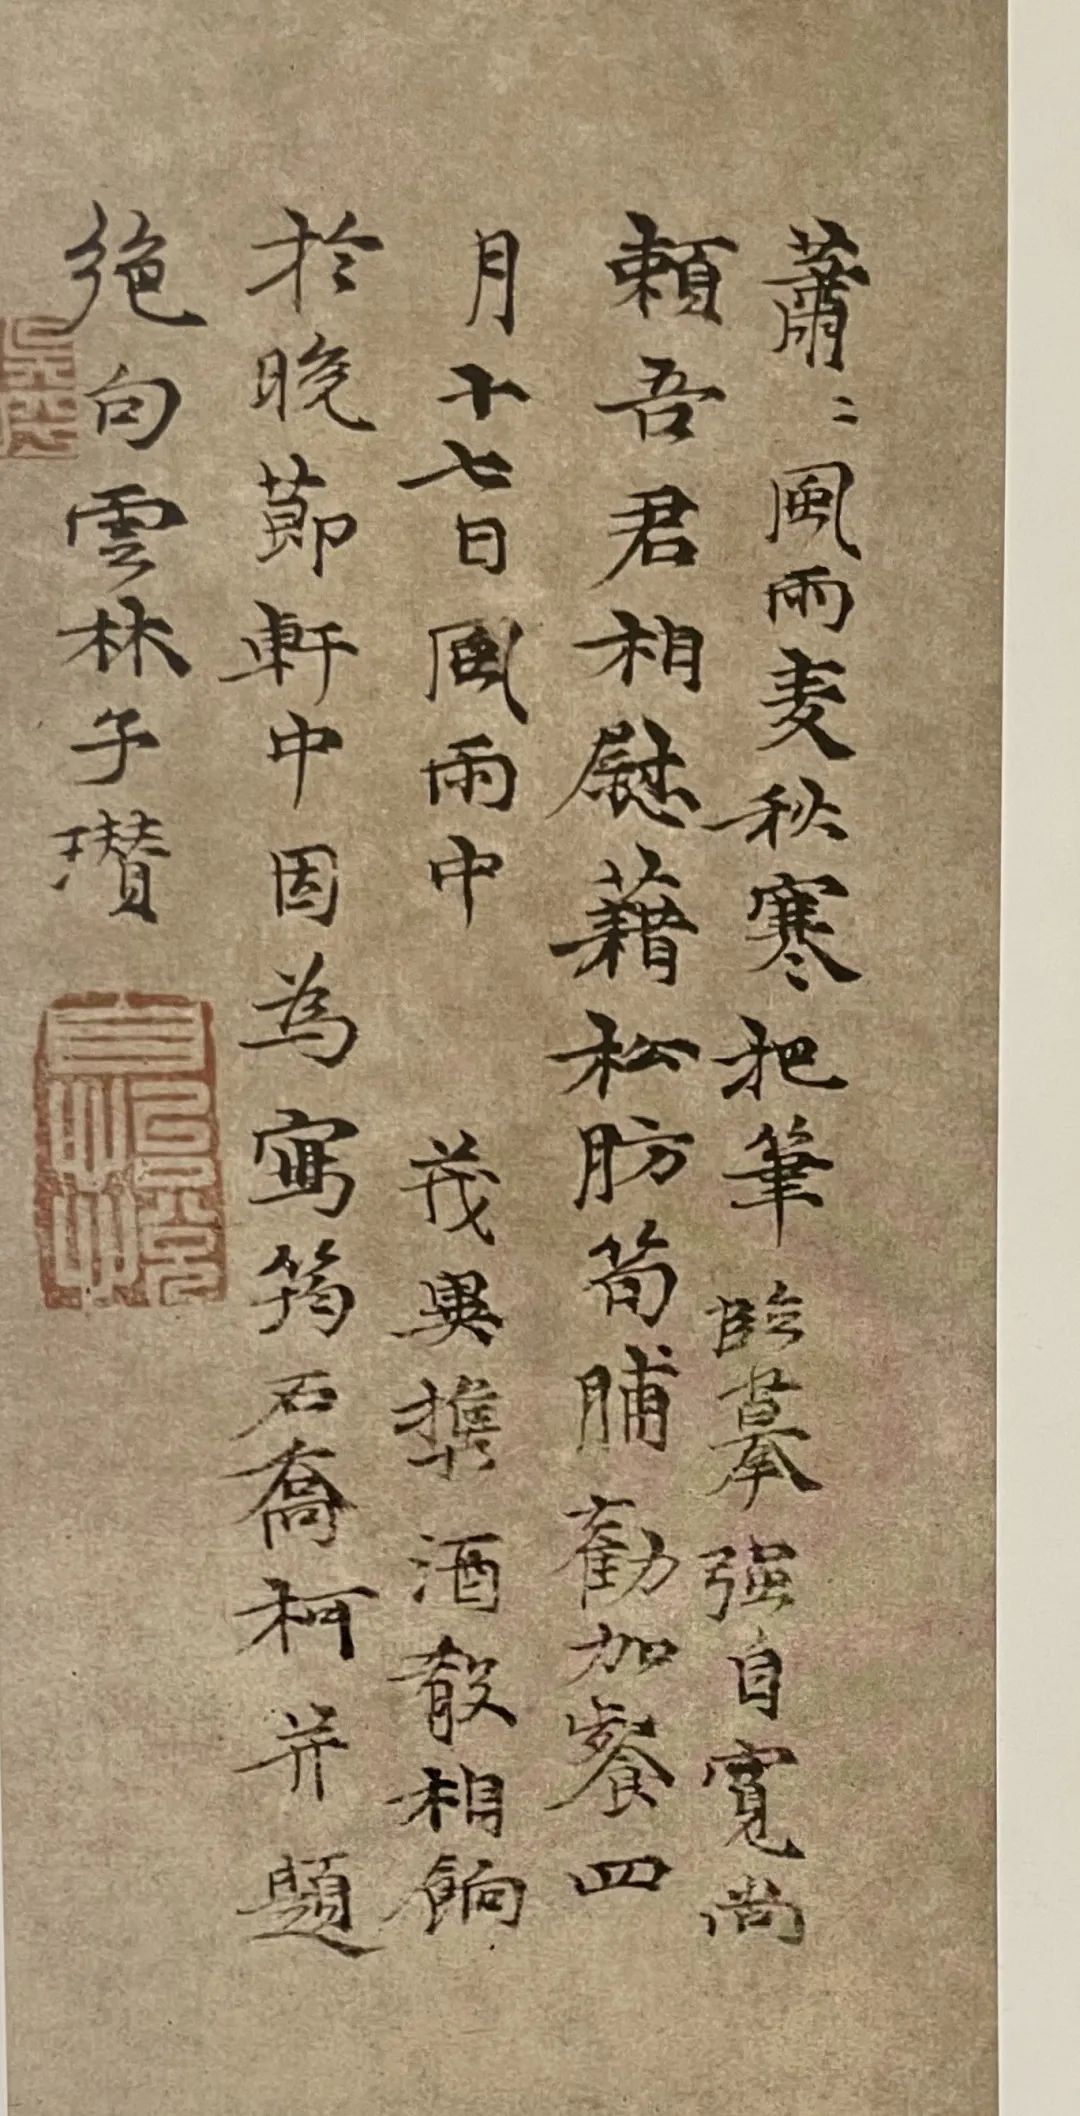 蕭〻風雨麦秋寒把筆臨摹強自寬尚
賴吾君相慰藉松肪筍脯勸加餐四
月十七日風雨中　茂異攜酒殽相餉
於晚節軒中因為寫筠石喬柯并題
絶句雲林子瓚